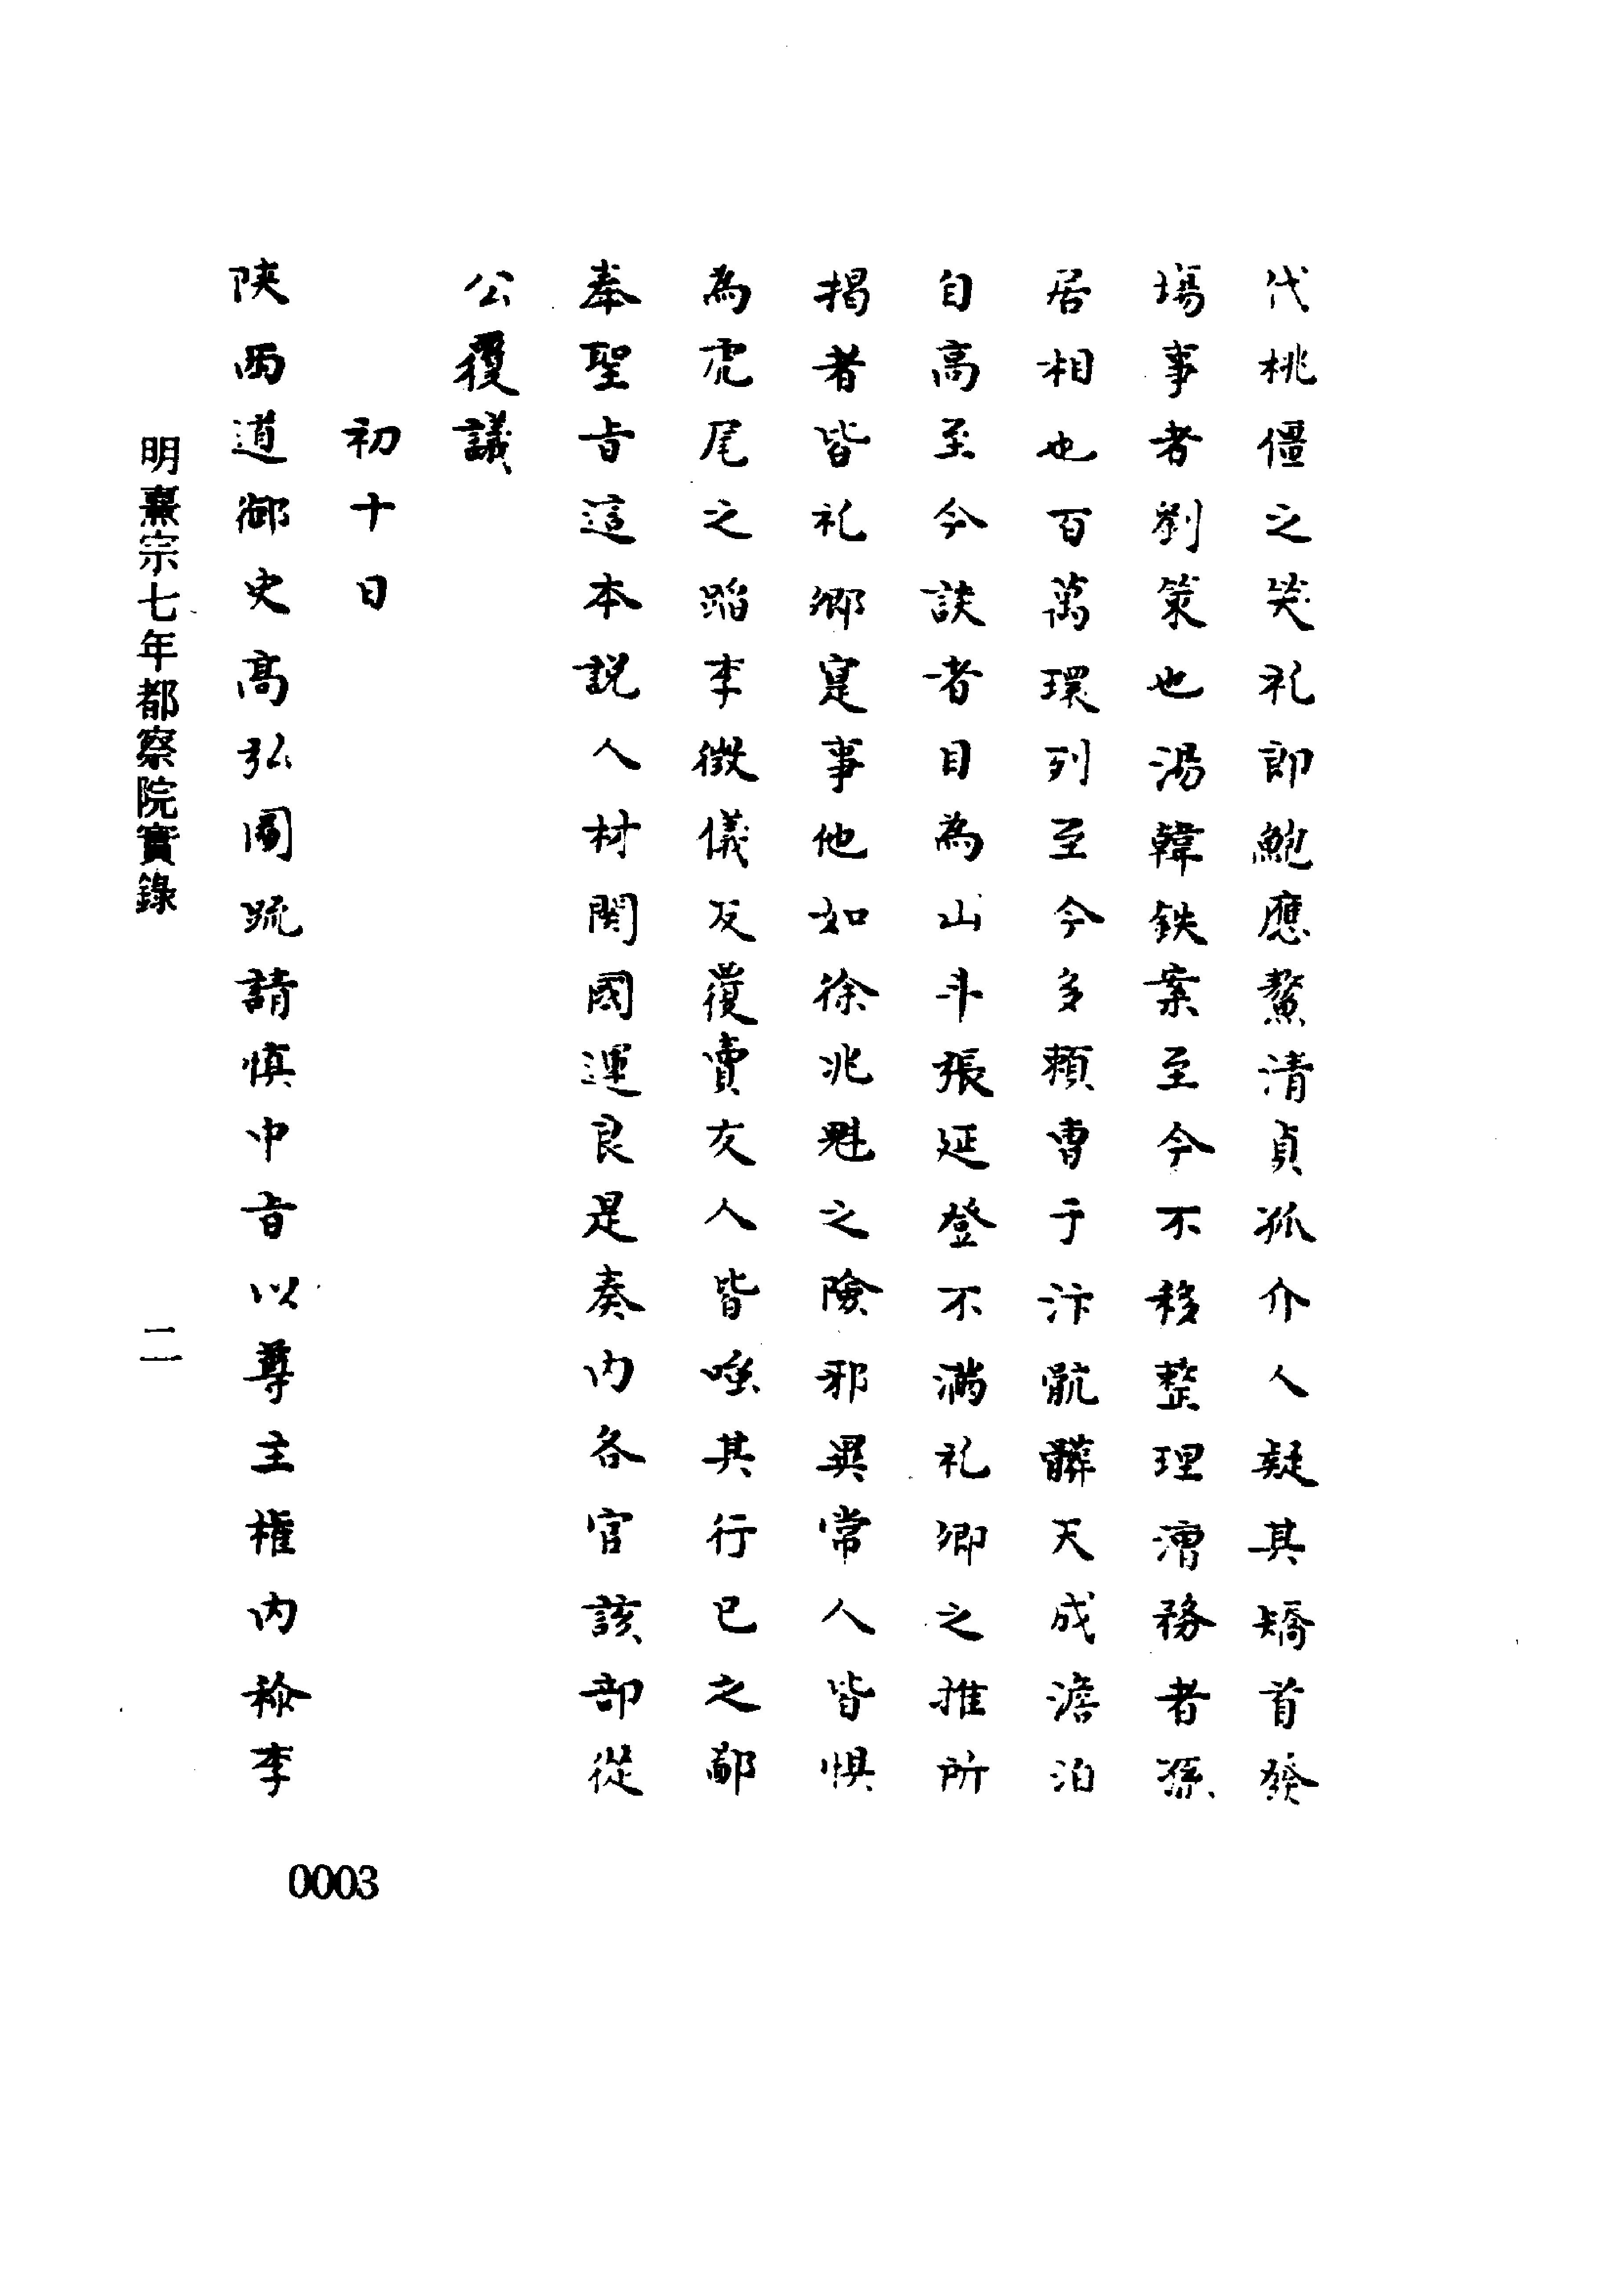 代桃僵之笑礼部鮑應鰲清貞孤介人疑其矯首發
場事者劉策也湯韓鉄案至今不移整理漕務者孫
居相也百萬環列至今多頼曹于汴骯髒天成澹泊
自高至今談者目為山斗張延登不滿礼卿之推所
揭者皆礼鄉寔事他如徐兆魁之險邪異常人皆惧
為虎尾之蹈李徵儀反覆賣友人皆唾其行已之鄙
奉聖旨這本説人材関國運良是奏内各官該部從
公覆議
初十日
陝西道御史高弘圖疏請慎中旨以尊主權内称李
明熹宗七年都察院實錄
二
0003